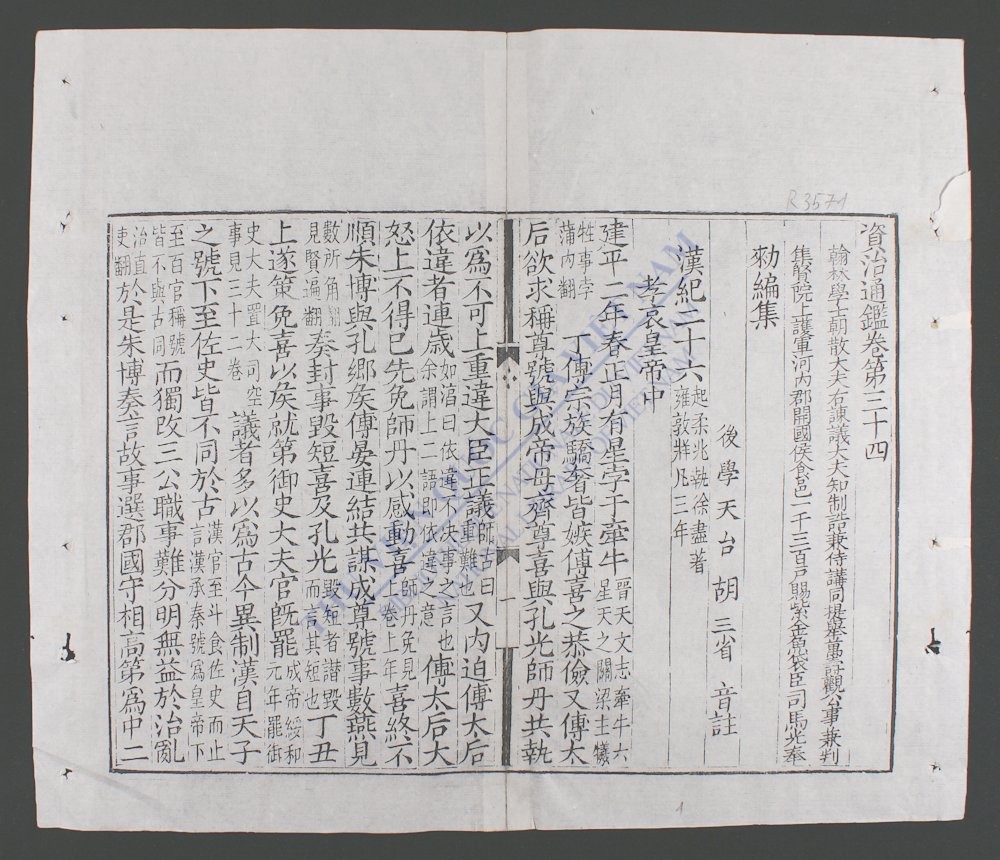 資治通鑑卷第三十四
翰林學士朝散大夫右諫議大夫知制誥兼侍講同提舉萬壽觀公事兼判
集賢院上護軍河內郡開國侯食邑一千三百戶賜紫金魚袋臣司馬光奉
勑編集
後學天台胡三省音註
漢紀二十六起柔兆執徐盡著雍敦牂凡三年
孝哀皇帝中
建平二年春正月有星孛于牽牛晉天文志牽牛六星天之關梁主犧
牲事孛蒲內翻 丁傅宗族驕奢皆嫉傅喜之恭儉又傅太
后欲求稱尊號與成帝母齊尊喜與孔光師丹共執
以爲不可上重違大臣正議師古曰重難也又內迫傅太后
依違者連歲如淳曰依違不決事之言也余謂上二語即依違之意傅太后大
怒上不得已先免師丹以感動喜師丹免見上卷上年喜終不
順朱博與孔鄉矦傅晏連結共謀成尊號事數燕見
數所角翻見賢遍翻奏封事毀短喜及孔光毀短者譖毀而言其短也丁丑
上遂策免喜以矦就第御史大夫官旣罷成帝綏和元年罷御
史大夫置大司空事見三十二卷議者多以爲古今異制漢自天子
之號下至佐史皆不同於古漢官至斗食佐史而止言漢承秦號爲皇帝下
至百官稱號皆不與古同而獨改三公職事難分明無益於治亂
治直吏翻於是朱博奏言故事選郡國守相高第爲中二
一
R.3574
THƯ VIỆN QUỐC GIA VIỆT NAM
NATIONAL LIBRARY OF VIETNAM
1